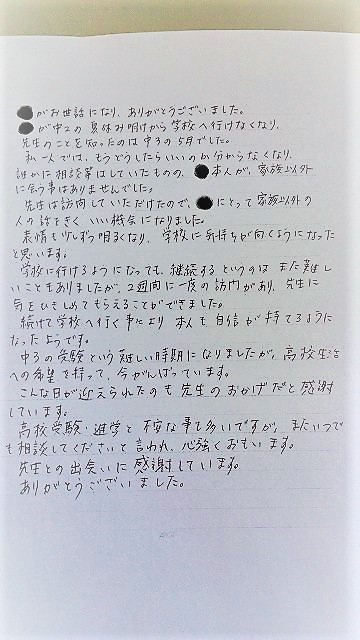 がお世話になり、ありがとうございました。
が中2の夏休み明けから学校へ行けなくなり、
先生のことを知ったのは中3の5月でした。
私一人では、もうどうしたらいいのか分からなくなり、
誰かに相談等はしていたものの、本人が、家族以外
に会う事はありませんでした。
先生は訪問していただけたので、にとって家族以外の
人の話をきくいい機会になりました。
表情も少しずつ明るくなり、学校に気持ちが向くようになった
と思います。
学校に行けるようになっても、継続するというのはまた難し
いこともありましたが、2週間に一度の訪問があり、先生に
気をひきしめてもらえることができました。
続けて学校へ行く事により本人も自信が持てるように
なったようです。
中3の受験という難しい時期になりましたが、高校生活
への希望を持って、今がんばっています。
こんな日が迎えられたのも先生のおかげだと感謝
しています。
高校受験・進学と不安な事も多いですが、またいつで
も相談してくださいと言われ、心強くおもいます。
先生との出会いに感謝しています。
ありがとうございました。